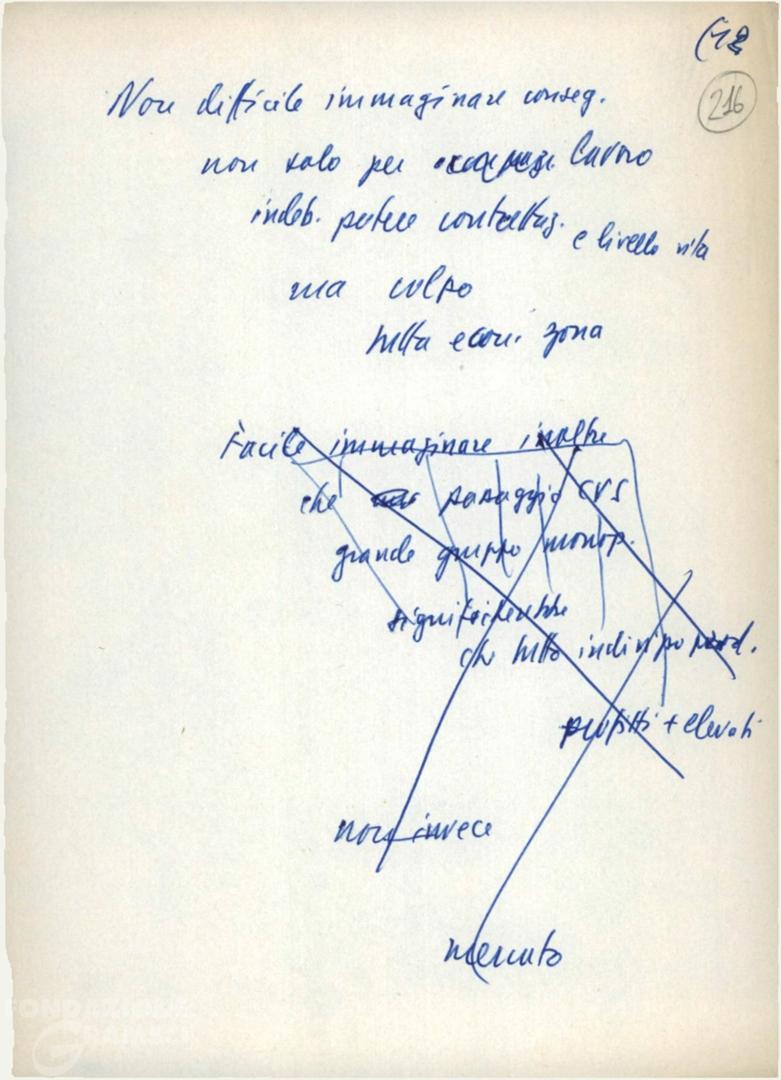 (42
216
Non difficile immaginare conseg.
non solo per lavoro
indeb. potere contrattuaz. e livello vita
ma colpo
tutta econ. zona
Facile immaginare inoltre
che passaggio CVS
grande gruppo monop.
significherebbe
che tutto indirizzo prod.
profitti + elevati
non invece
mercato
FONDAZIONE
GRAMSCI